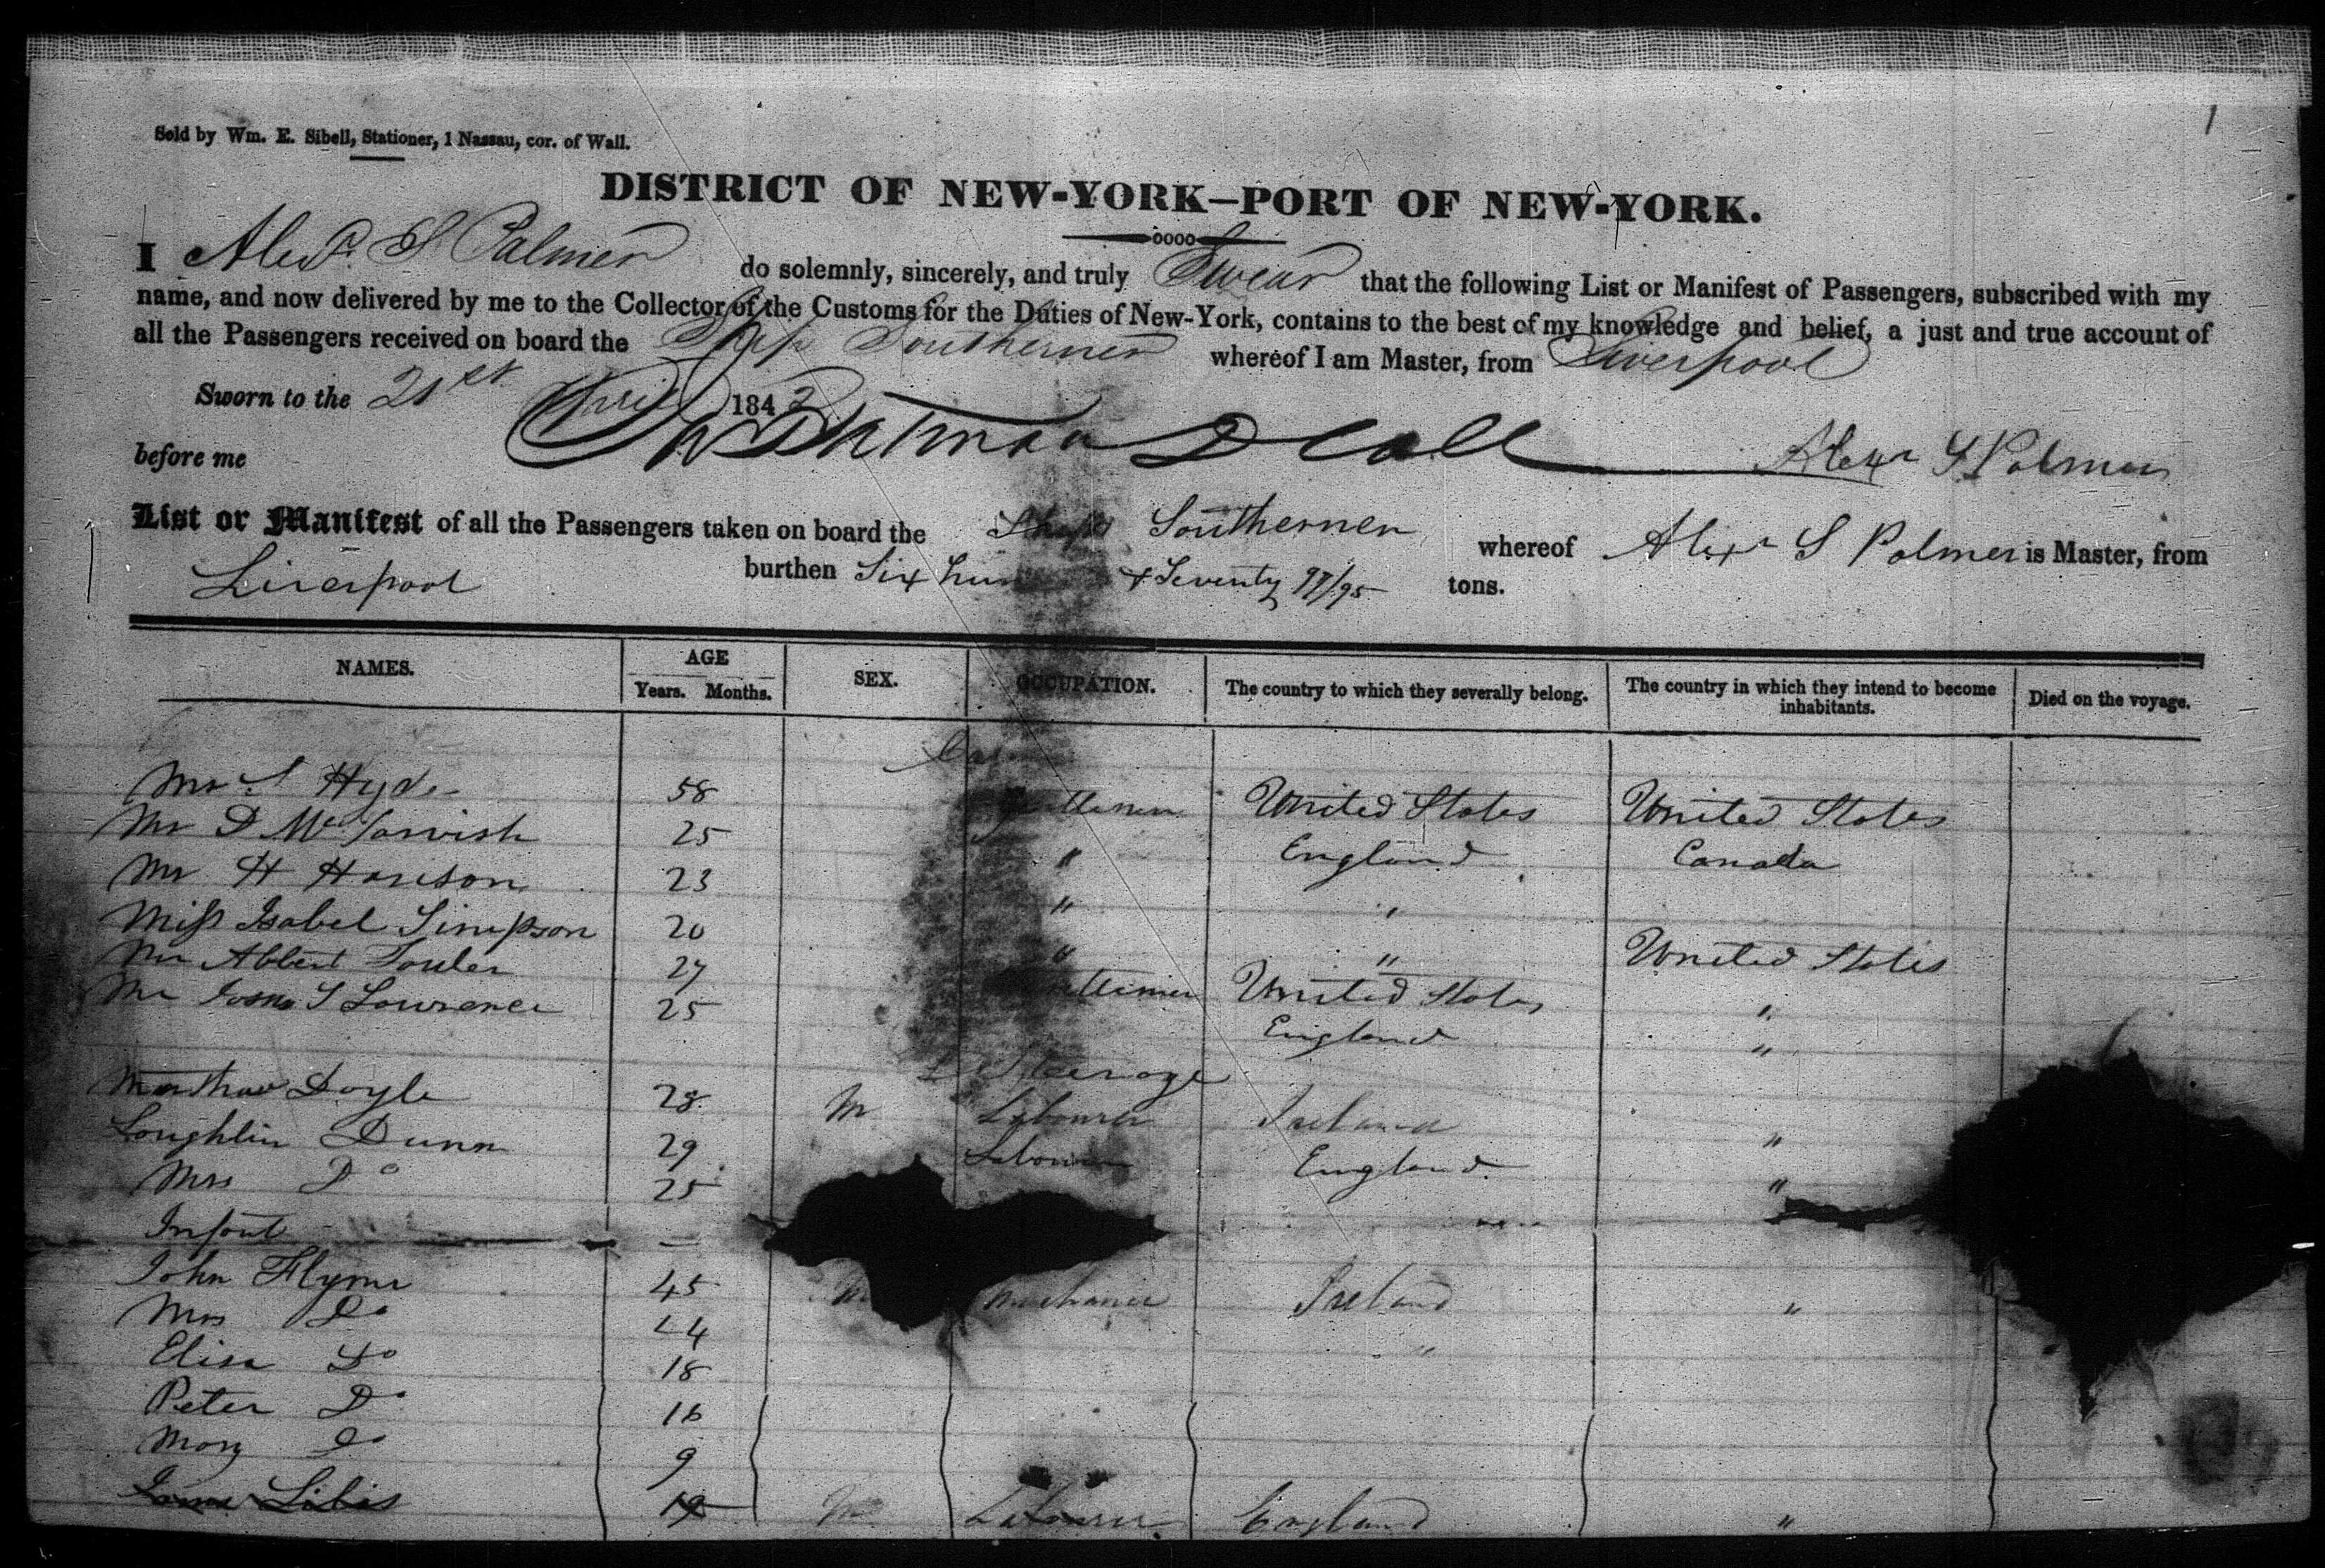 1
Sold by Wm. E. Sibell, Stationer, 1 Nassau, cor. of Wall.
DISTRICT OF NEW-YORK—PORT OF NEW-YORK.
I Alexr. S Palmer do solemnly, sincerely, and truly Swear that the following List or Manifest of Passengers, subscribed with my
name, and now delivered by me to the Collector of the Customs for the Duties of New-York, contains to the best of my knowledge and belief, a just and true account of
all the Passengers received on board the Ship Southerner whereof I am Master, from Liverpool
Sworn to the 21st April 184
before me Alexr S Palmer
List or Manifest of all the Passengers taken on board the Ship Southerner whereof Alexr S Palmer is Master, from
Liverpool burthen Six hun & Seventy tons.
NAMES. AGE Years. Months. SEX. OCCUPATION. The country to which they severally belong. The country in which they intend to become inhabitants. Died on the voyage.
Mr S Hyde 58 United States United States
Mr D McTarvish 25 " England Canada
Mr H Harison 23 " "
Miss Isabel Simpson 20 " " United States
Mr Albert Fowler 27 United States "
Mr S Lawrence 25 England "
Steerage
Doyle 28 M Labourer Ireland "
Loughlin Dunn 29 Labourer England "
Mrs Do 25
Infant —
John Flynn 45 M Mechanic Ireland "
Mrs Do 44 "
Elisa Do 18
Peter Do 16
Mary Do 9
M Labourer England "